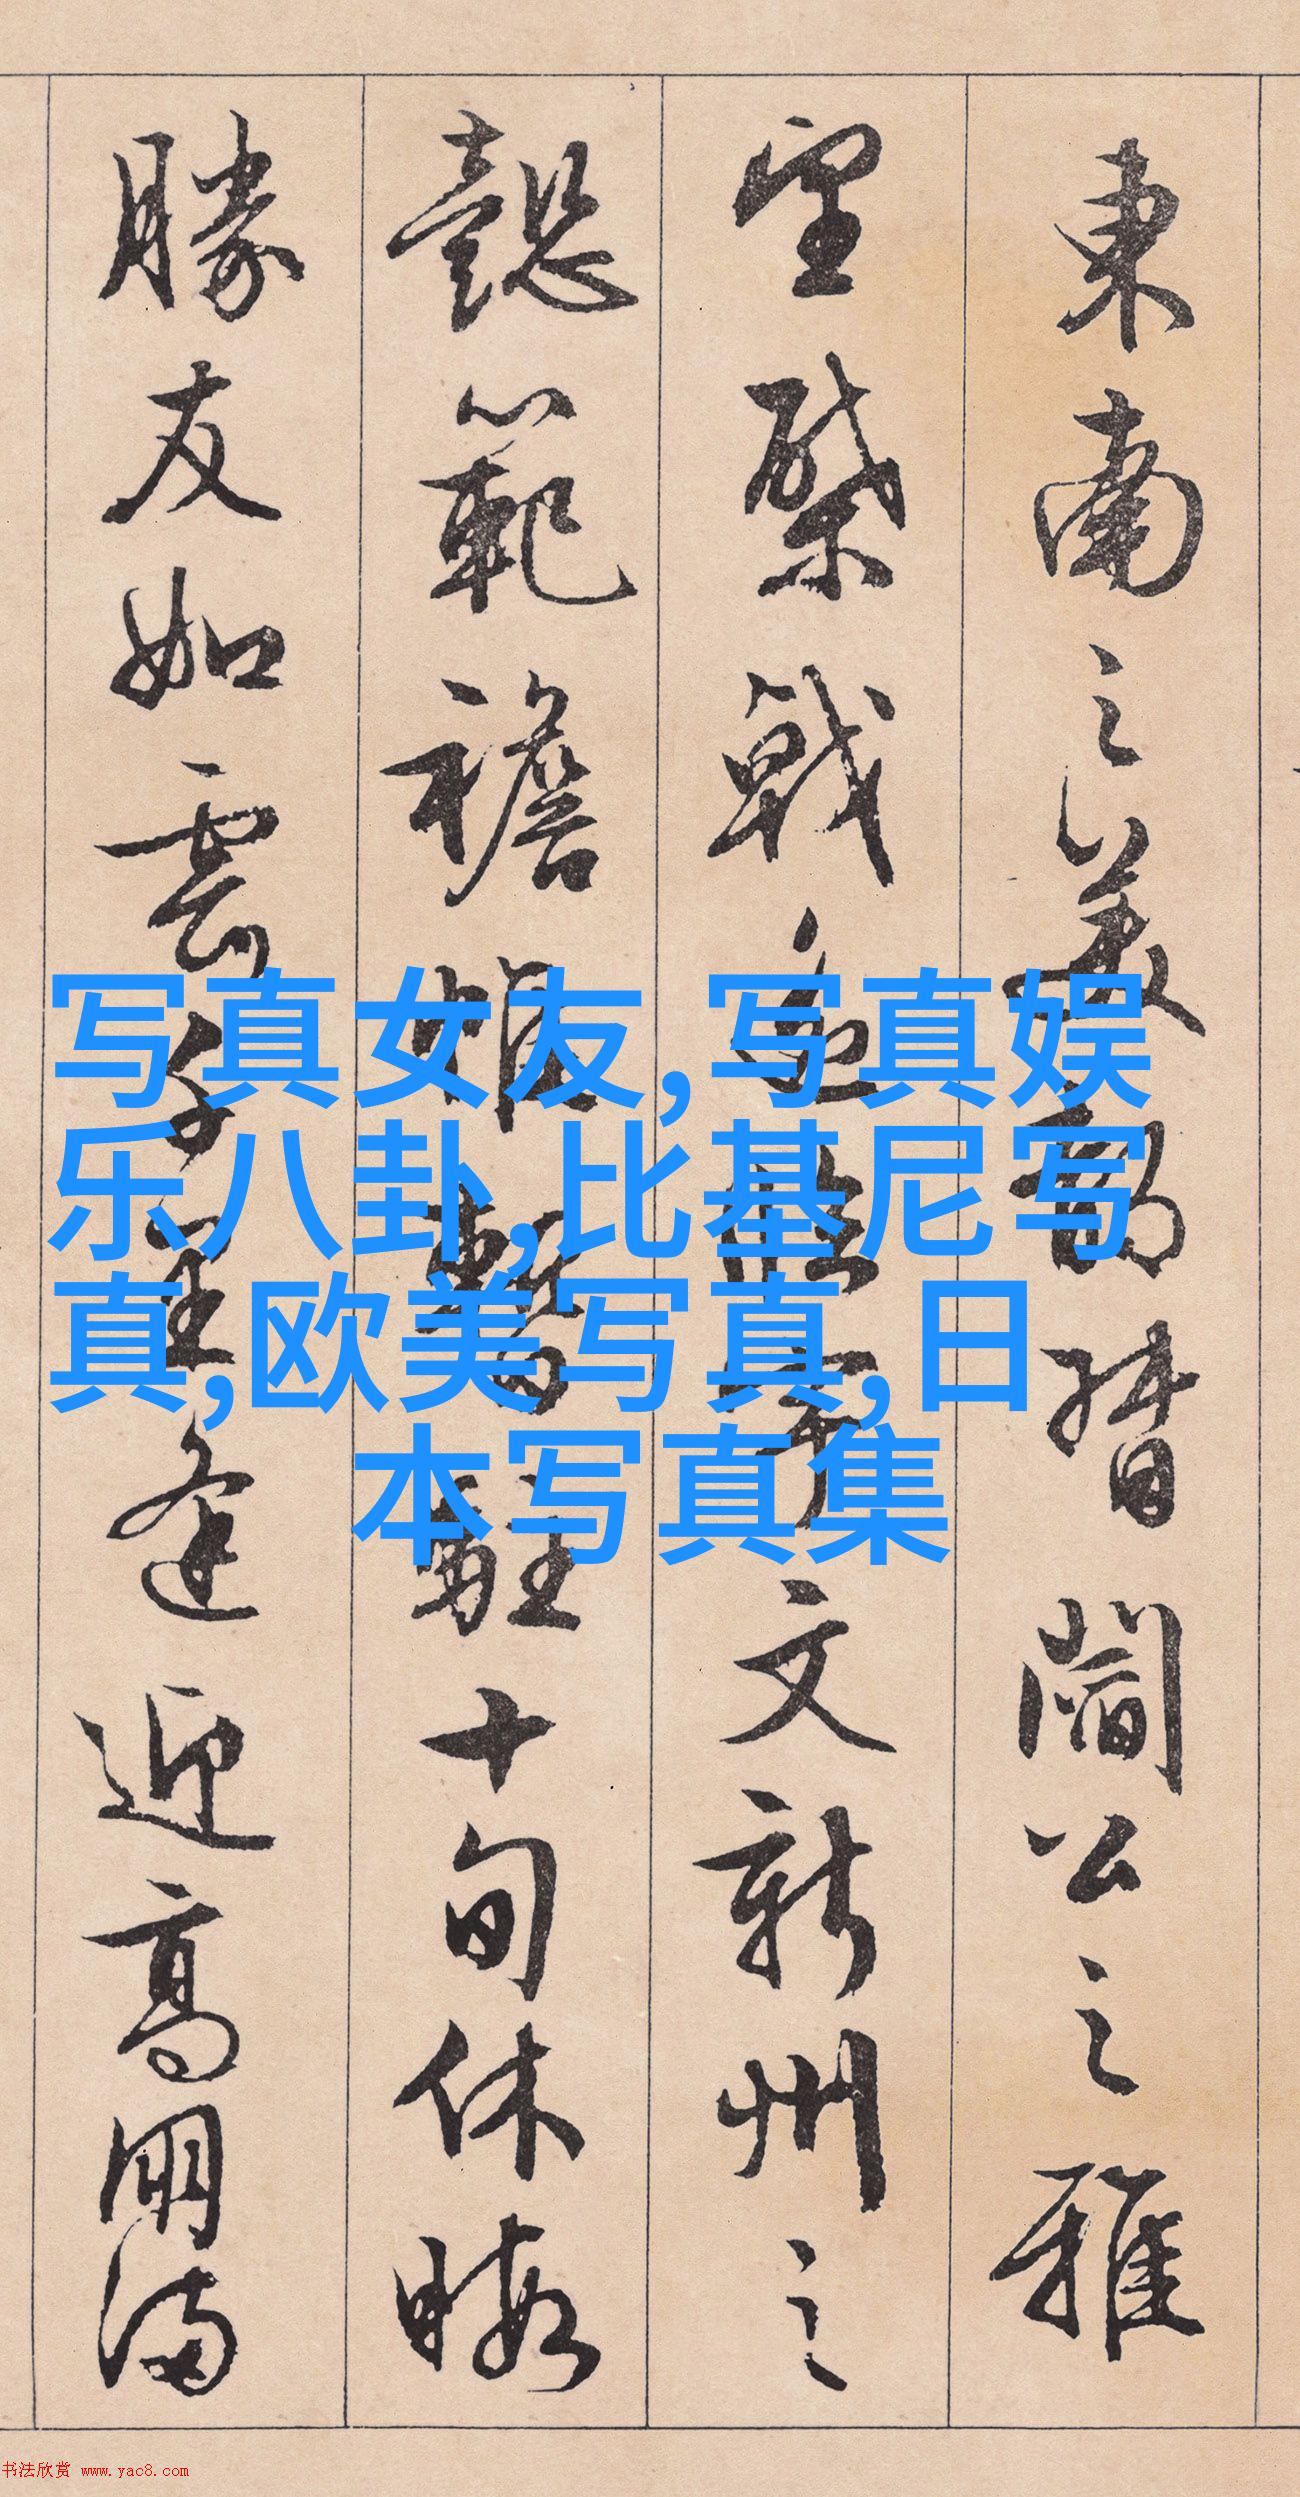 東南之美都督閻公之雅
望棨戟遙臨宇文新州之
懿範襜帷暫駐十旬休暇
勝友如雲千里逢迎高朋滿
写真女友,写真娱
乐八卦,比基尼写
真,欧美写真,日
本写真集
书法欣赏 www.yac8.com